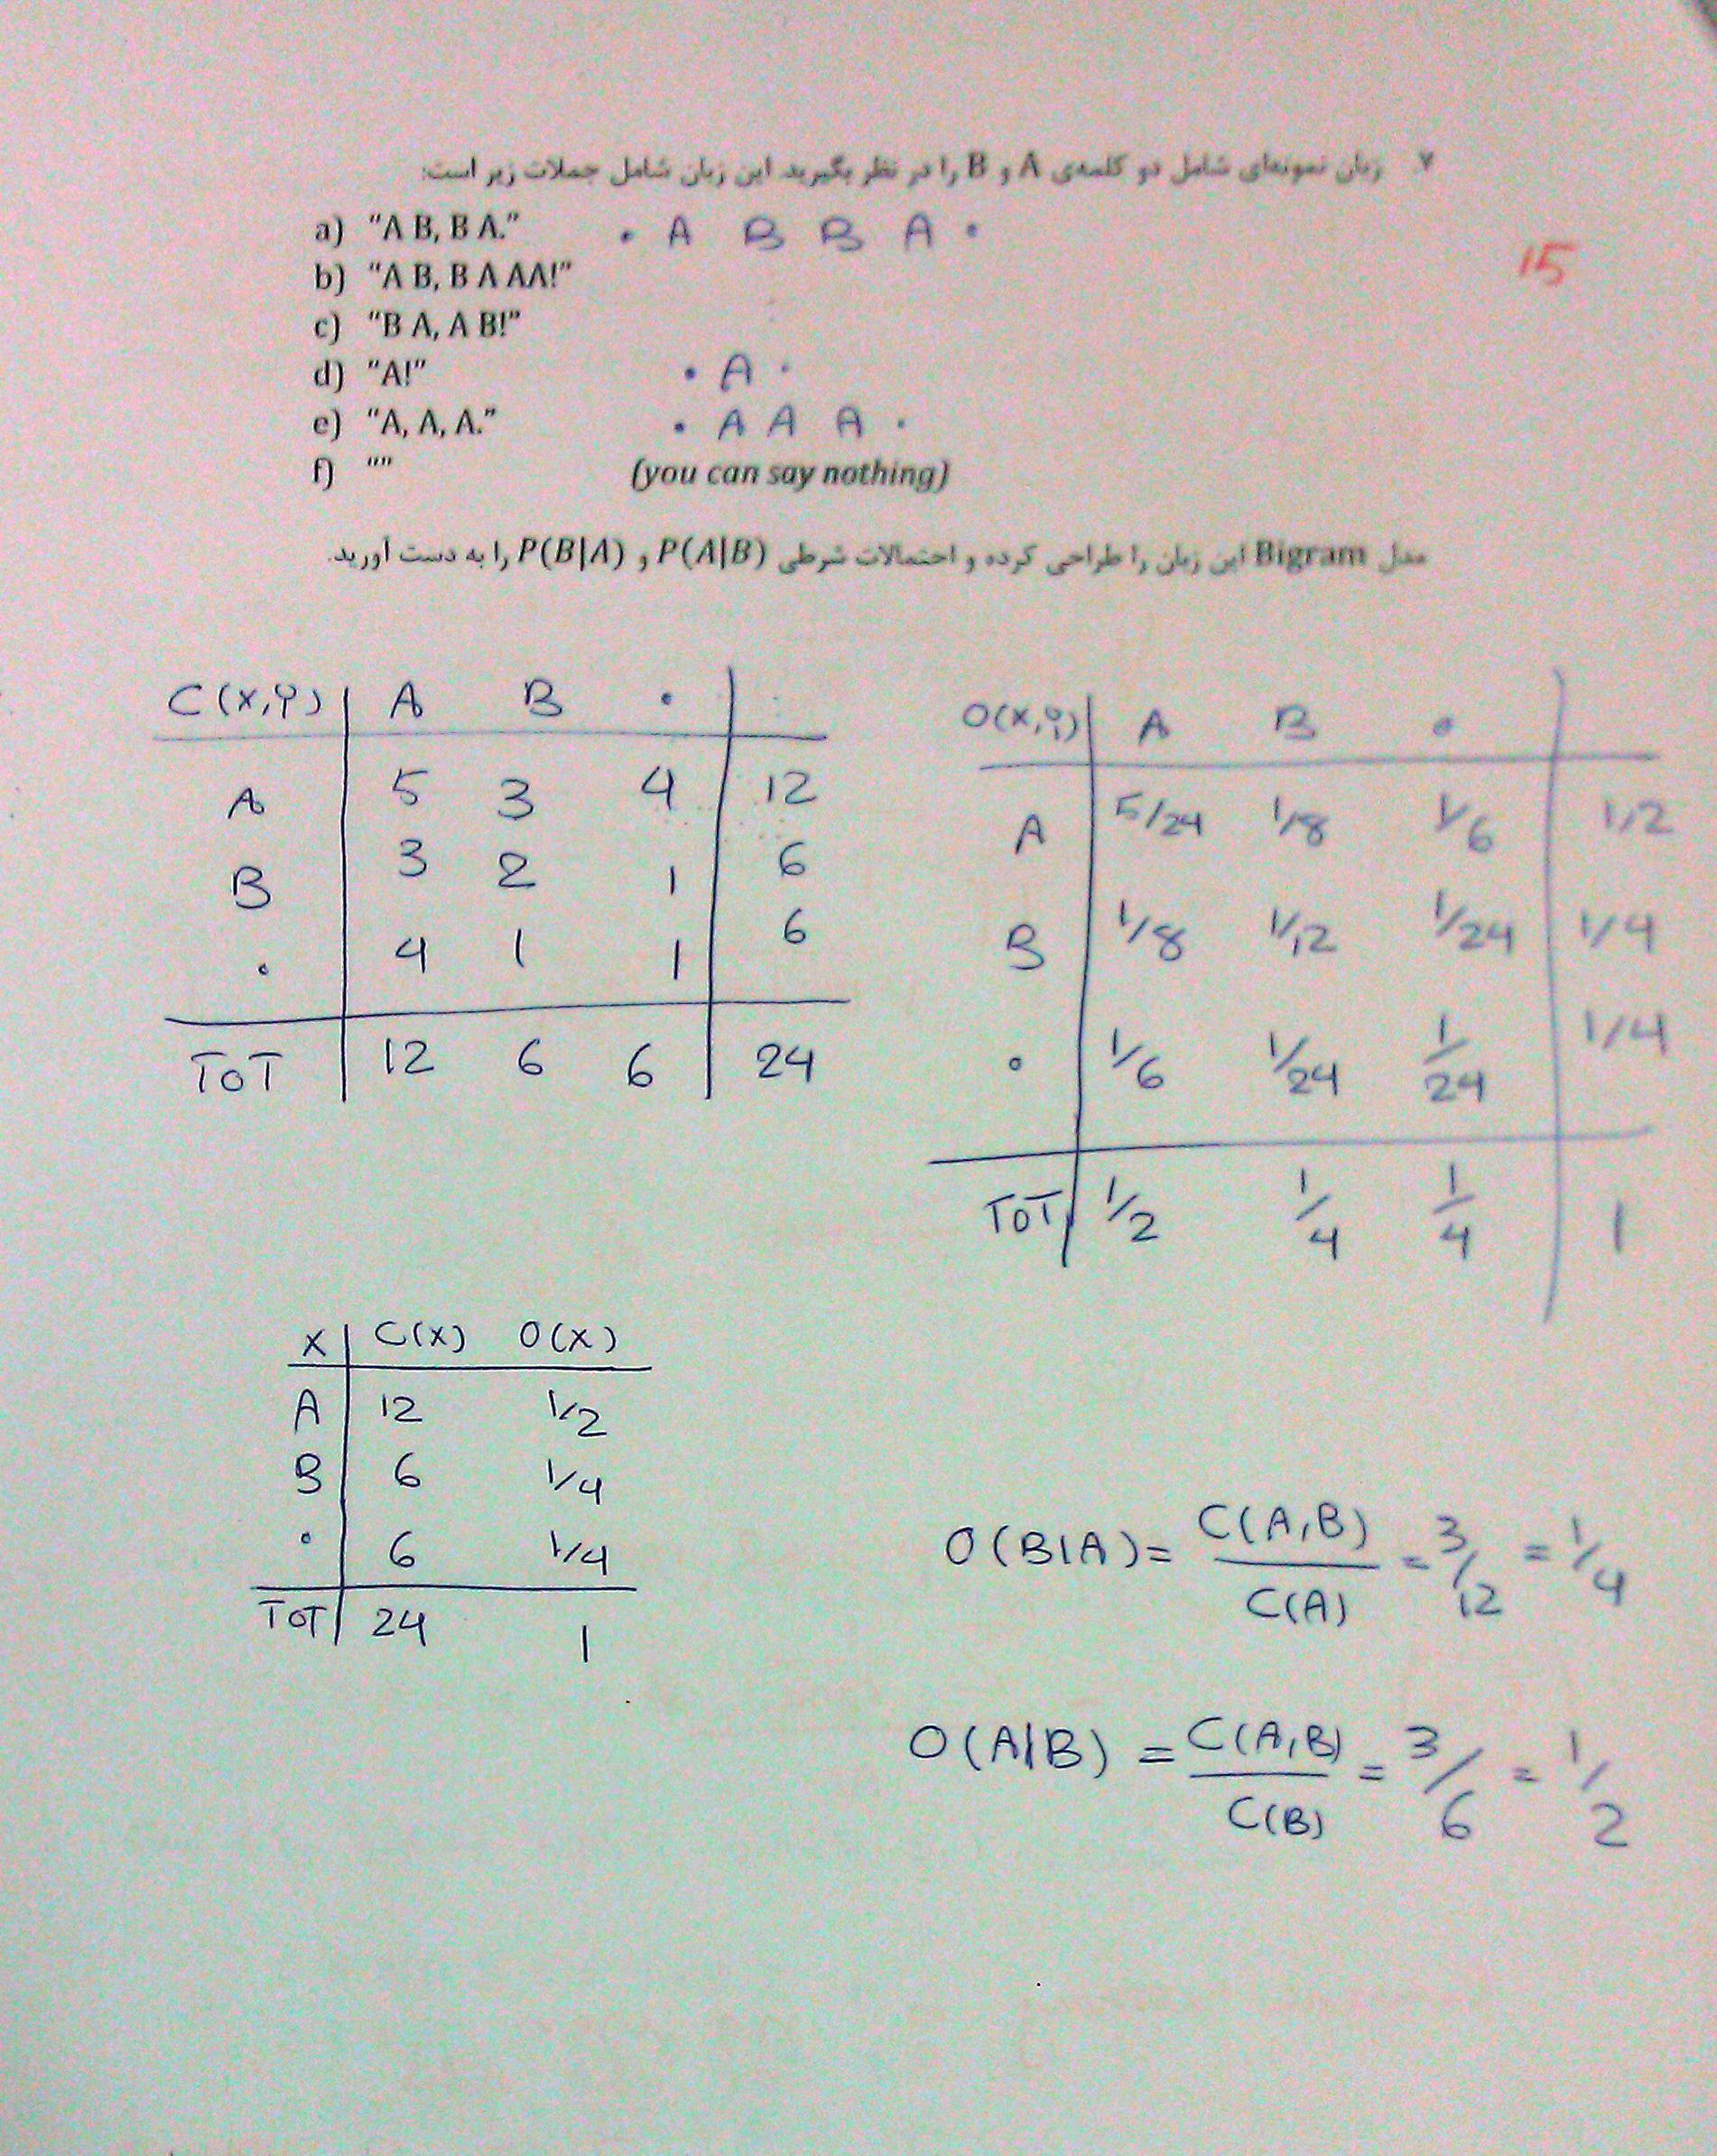 ۷. زبان نمونه‌ای شامل دو کلمه‌ی A و B را در نظر بگیرید این زبان شامل جملات زیر است:
a) "A B, B A." • A B B A •
15
b) "A B, B A AA!"
c) "B A, A B!"
d) "A!" • A •
e) "A, A, A." • A A A •
f) "" (you can say nothing)
مدل Bigram این زبان را طراحی کرده و احتمالات شرطی P(A|B) و P(B|A) را به دست آورید.
C(X,Y) A B •
A 5 3 4 12
B 3 2 1 6
• 4 1 1 6
TOT 12 6 6 24
O(X,Y) A B •
A 5/24 1/8 1/6 1/2
B 1/8 1/12 1/24 1/4
• 1/6 1/24 1/24 1/4
TOT 1/2 1/4 1/4 1
X C(X) O(X)
A 12 1/2
B 6 1/4
• 6 1/4
TOT 24 1
O(B|A) = C(A,B) / C(A) = 3/12 = 1/4
O(A|B) = C(A,B) / C(B) = 3/6 = 1/2